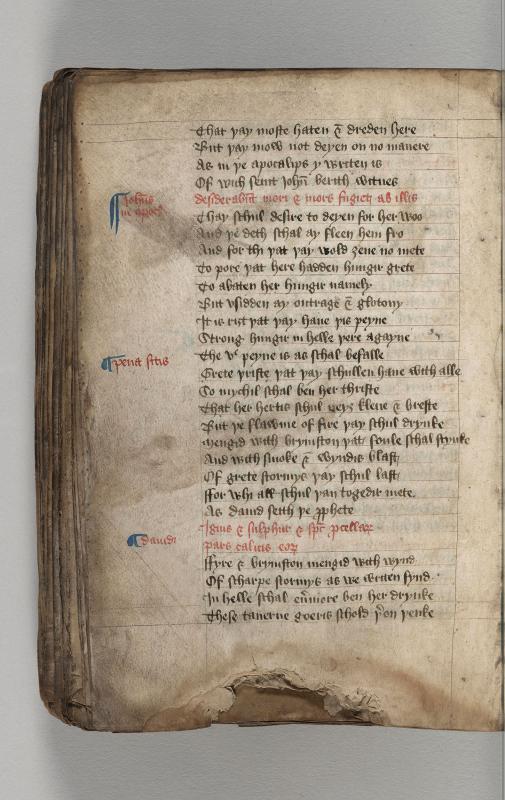 That þay moste haten & dreden here
But þay mow not deyen on no manere
As in þe apocalips y writen is
Of wich seint John berith witnes
Johnis
in apoc
desiderabunt mori & mors fugiet ab illis
Thay schul desire to deyen for her woo
And þe deth schal ay fleen hem fro
And for thi þat þay wold ȝeue no mete
To pore þat here hadden hungir grete
To abaten her hungir namely
But vsidden ay outrage & glotony
It is riȝt þat þay haue þis peyne
Strong hungir in helle þere agayne
pena sitis
The v peyne is as schal befalle
Grete þriste þat þay schullen haue with alle
So mychil schal ben her thriste
That her hertis schul cleue & breste
But þe flawme of fire þay schul drynke
mengid with brymston þat foule schal stynke
And with smoke & wyndis blast
Of grete stormys þay schul last
ffor whi all schul þan togedir mete
As dauid seith þe pphete
dauid
Ignis & sulphur & spc pcellar
pars calicis eoꝝ
ffyre & brymston mengid with wynd
Of scharpe stormys as we writen fynd
In helle schal euermore ben her drynke
These tauerne goeris schold þon þenke